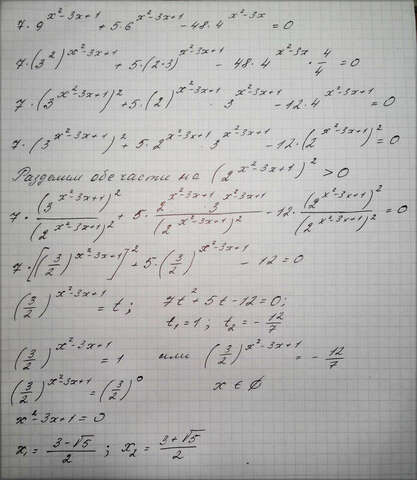 7·9^(x²-3x+1) + 5·6^(x²-3x+1) - 48·4^(x²-3x) = 0
7·(3²)^(x²-3x+1) + 5·(2·3)^(x²-3x+1) - 48·4^(x²-3x)·4/4 = 0
7·(3^(x²-3x+1))² + 5·(2)^(x²-3x+1)·3^(x²-3x+1) - 12·4^(x²-3x+1) = 0
7·(3^(x²-3x+1))² + 5·2^(x²-3x+1)·3^(x²-3x+1) - 12·(2^(x²-3x+1))² = 0
Разделим обе части на (2^(x²-3x+1))² > 0
7·(3^(x²-3x+1))²/(2^(x²-3x+1))² + 5·2^(x²-3x+1)·3^(x²-3x+1)/(2^(x²-3x+1))² - 12·(2^(x²-3x+1))²/(2^(x²-3x+1))² = 0
7·[(3/2)^(x²-3x+1)]² + 5·(3/2)^(x²-3x+1) - 12 = 0
(3/2)^(x²-3x+1) = t; 7t² + 5t - 12 = 0;
t₁ = 1; t₂ = -12/7
(3/2)^(x²-3x+1) = 1 или (3/2)^(x²-3x+1) = -12/7
(3/2)^(x²-3x+1) = (3/2)⁰ x ∈ ∅
x²-3x+1 = 0
x₁ = (3-√5)/2; x₂ = (3+√5)/2